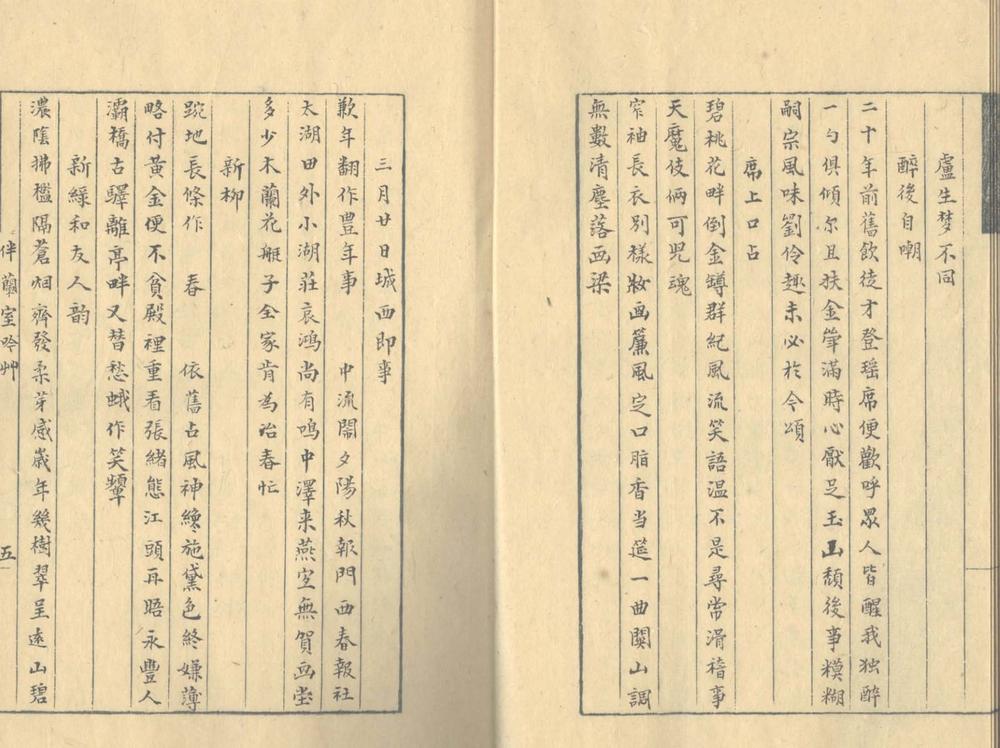 盧生梦不同
醉後自嘲
二十年前舊飲徒才登瑶席便歡呼眾人皆醒我独醉
一勺俱傾尓且扶金斝滿時心厭足玉山頹後事糢糊
嗣宗風味劉伶趣未必於今頌
席上口占
碧桃花畔倒金罇群紀風流笑語温不是尋常滑稽事
天魔伎倆可児魂
窄袖長衣別樣妝画簾風定口脂香当筵一曲関山調
無數清塵落画梁
三月廿日城西即事
歉年翻作豊年事　中流閙夕陽秋報門西春報社
太湖田外小湖莊哀鴻尚有鳴中澤来燕宐無賀画堂
多少木蘭花艇子全家肯為冶春忙
新柳
踠地長條作　春　依舊占風神纔施黛色終嫌薄
略付黃金便不貧殿裡重看張緒態江頭再晤永豐人
灞橋古驛離亭畔又替愁蛾作笑顰
新綠和友人韵
濃陰拂檻隔蒼烟齊發柔芽感歲年幾樹翠呈遠山碧
伴蘭室吟艸
五